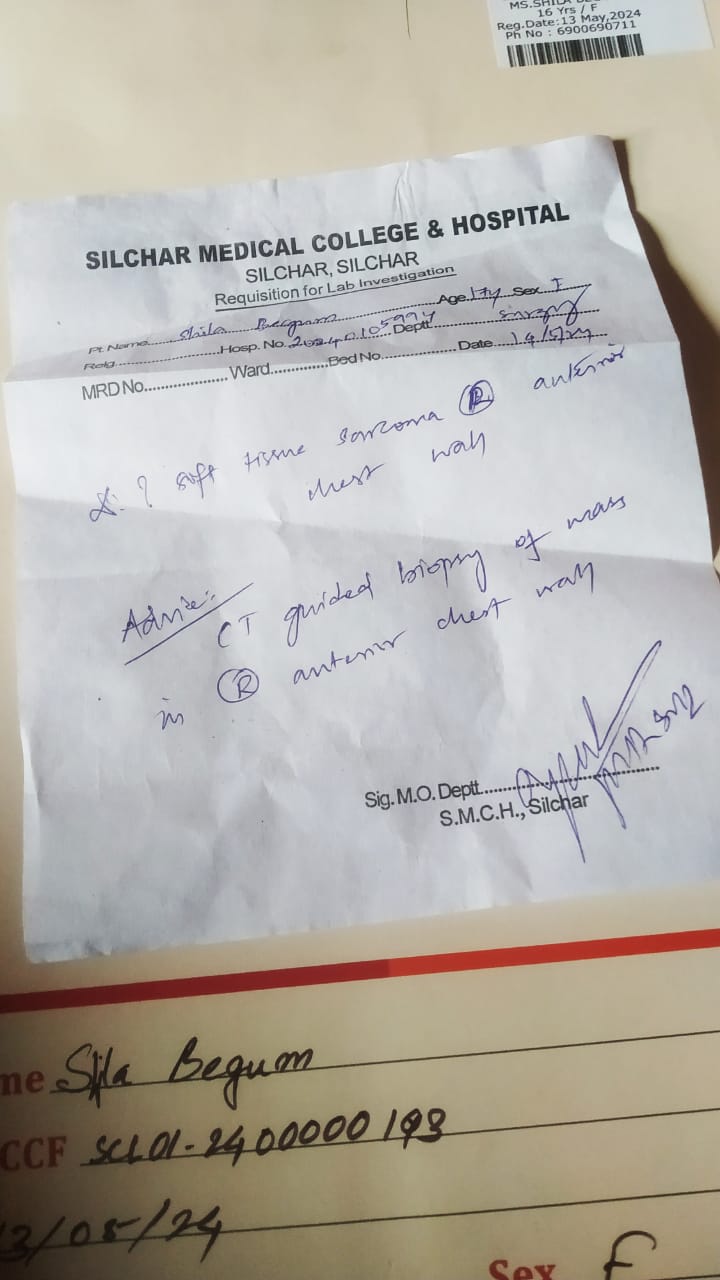 16 Yrs / F
Reg.Date:13 May,2024
Ph No : 6900690711
SILCHAR MEDICAL COLLEGE & HOSPITAL
SILCHAR, SILCHAR
Requisition for Lab Investigation
Pt Name Shila Begum Age 17y Sex F
Relg. Hosp. No. Deptt. Surgery
MRD No. Ward Bed No. Date 14/5/24
? soft tissue sarcoma (R) anterior
chest wall
Advice:
CT guided biopsy of mass
in (R) anterior chest wall
Sig. M.O. Deptt.
S.M.C.H., Silchar
me Begum
CCF SCL01-2400000193
3/05/24
Sex F